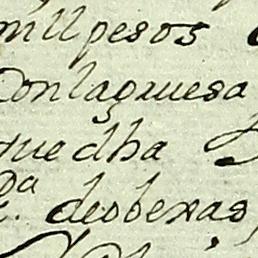 mill pesos
Con la gruesa
que dha
da
desbexas